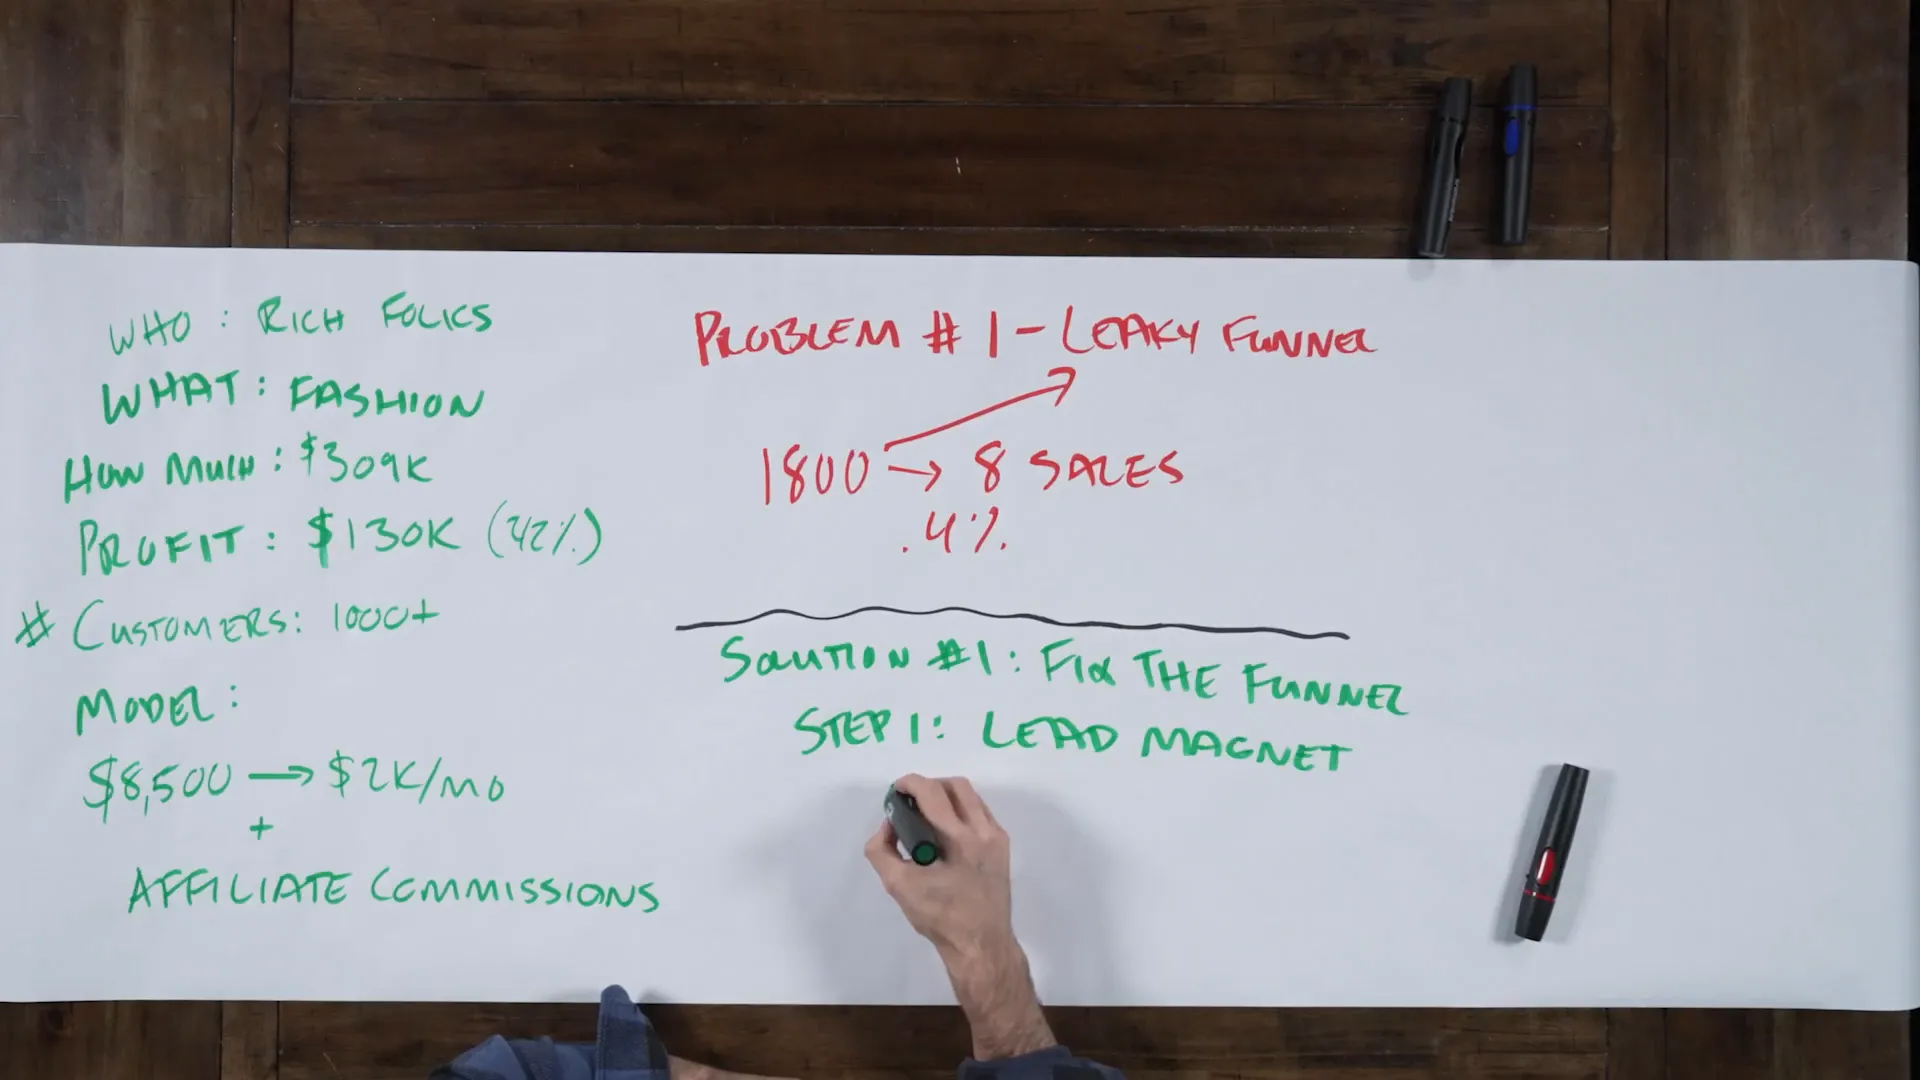 WHO: RICH FOLKS
WHAT: FASHION
HOW MUCH: $309K
PROFIT: $130K (42%)
# CUSTOMERS: 1000+
MODEL:
$8,500 → $2K/MO
+
AFFILIATE COMMISSIONS
PROBLEM #1 - LEAKY FUNNEL
1800 → 8 SALES
.4%
SOLUTION #1: FIX THE FUNNEL
STEP 1: LEAD MAGNET